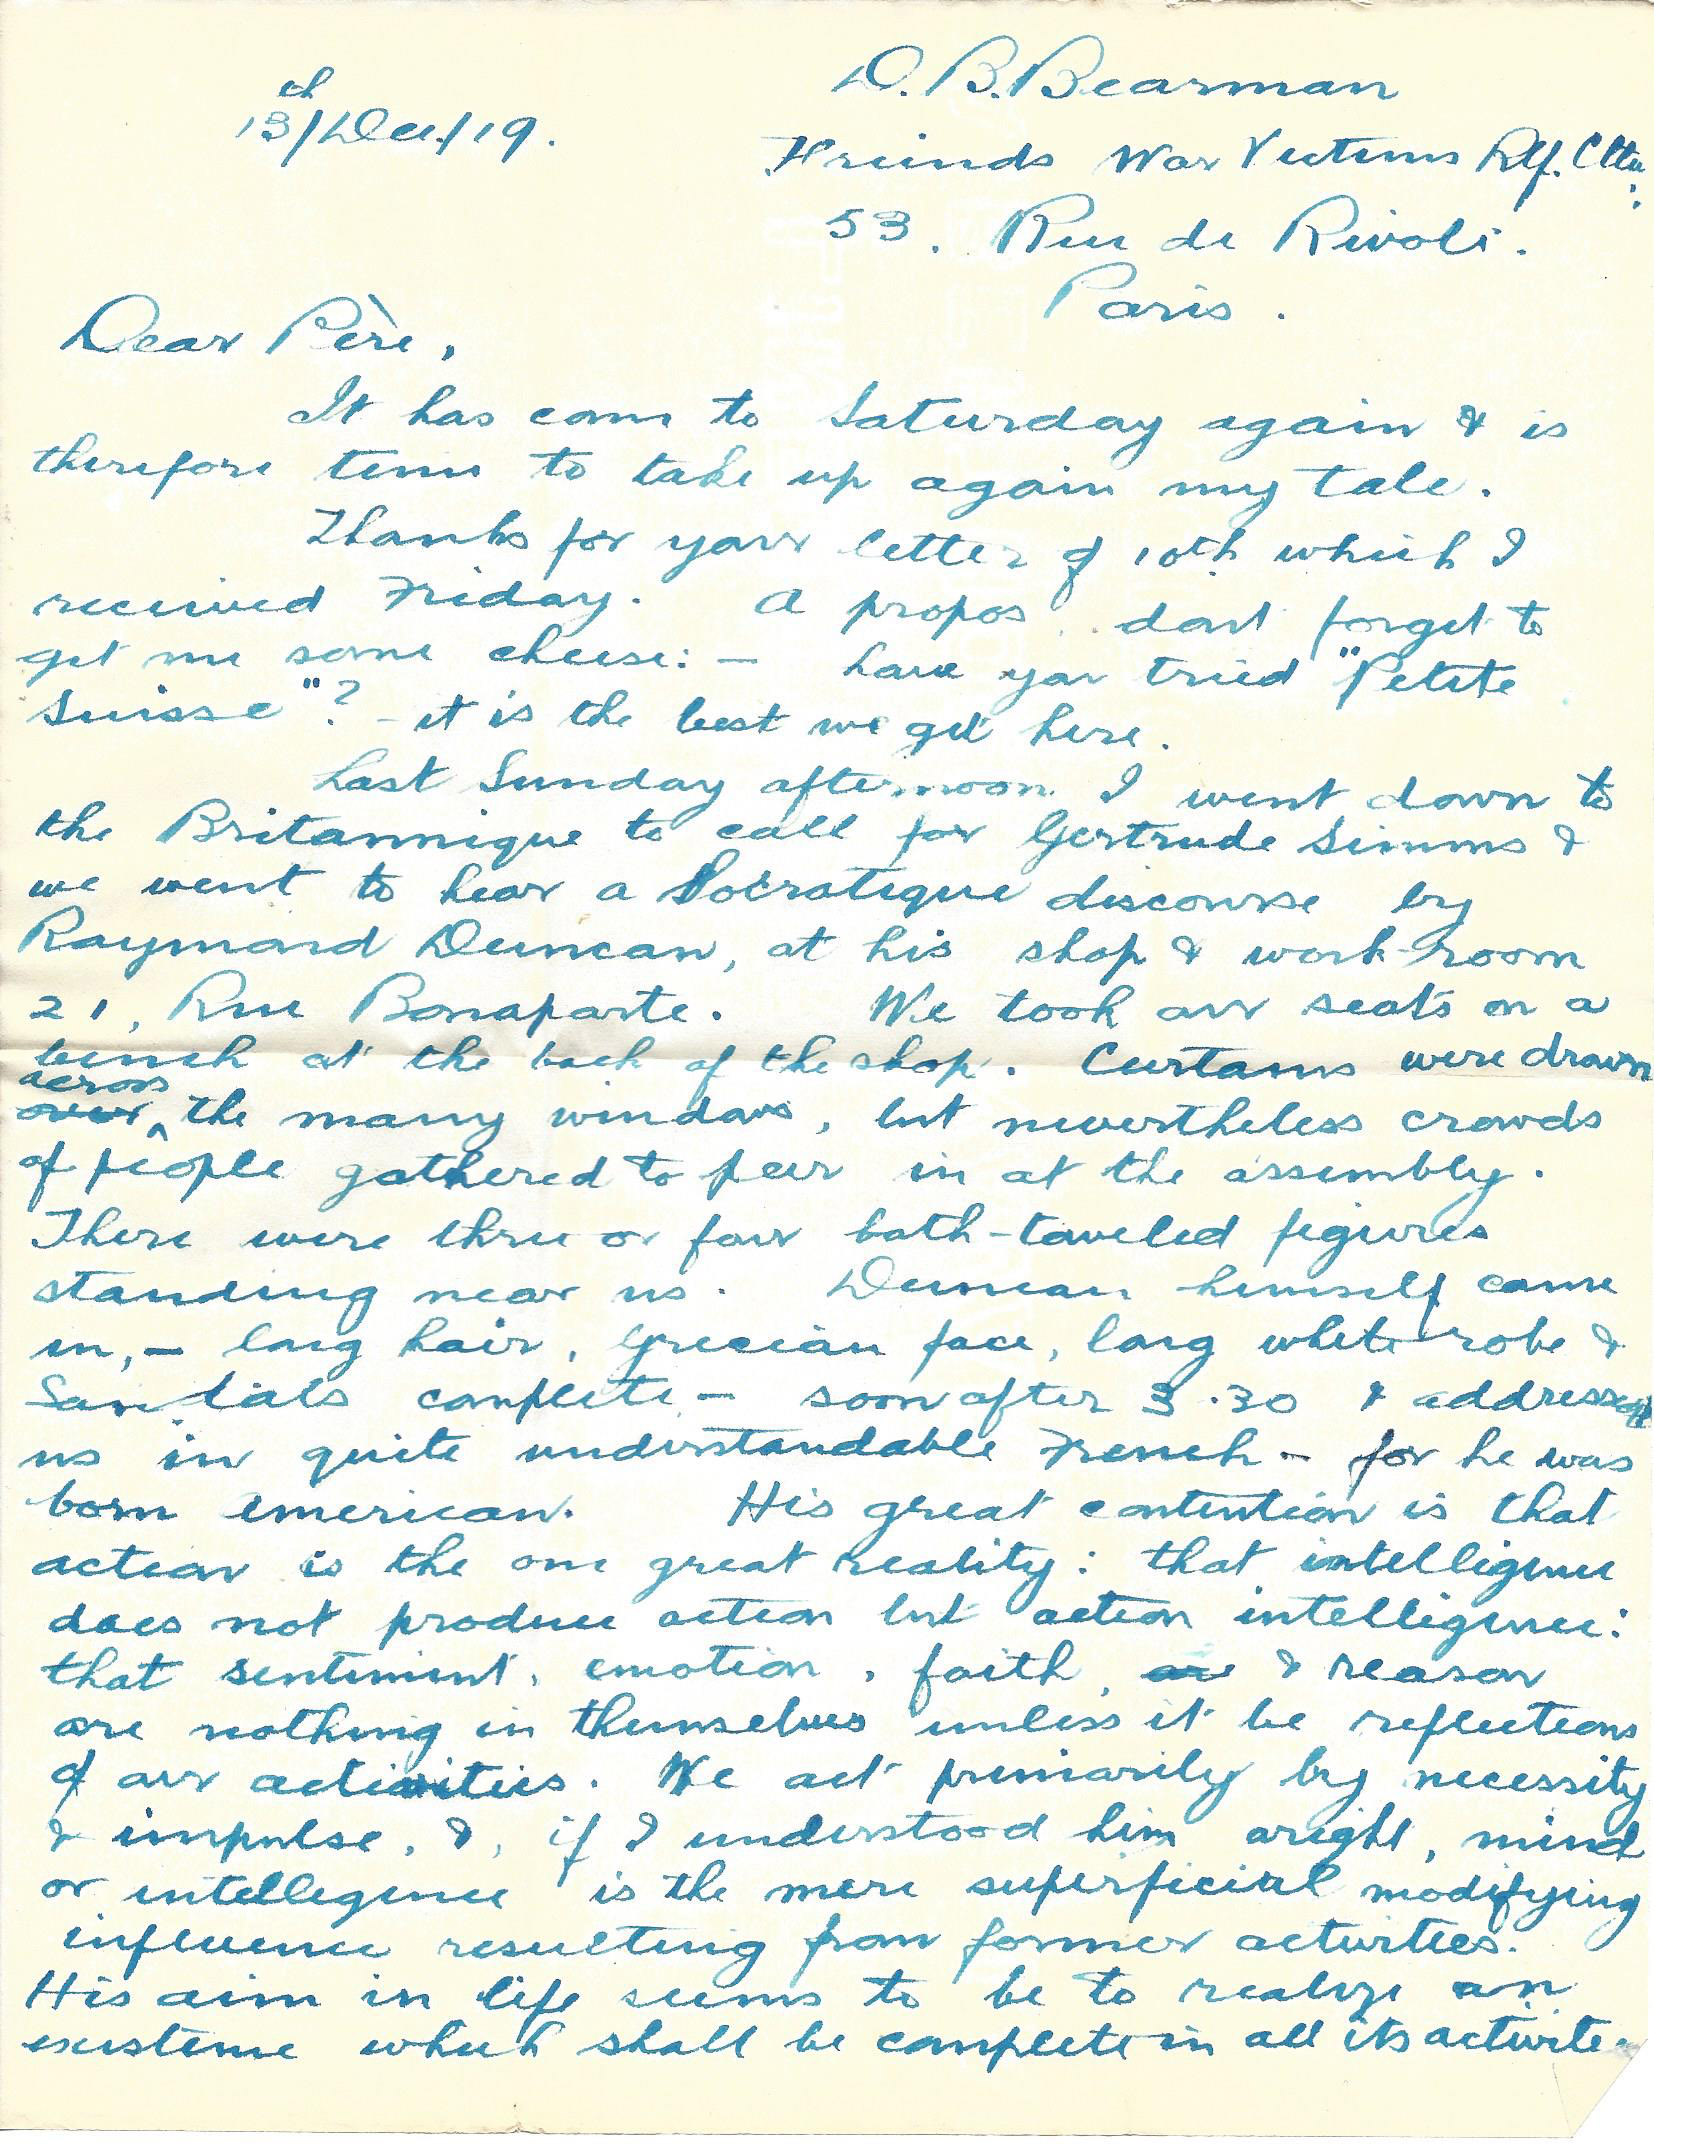 D. B. Bearman
13th/Dec./19.
Friends War Victims Rlf. Cttee.
53. Rue de Rivoli.
Paris.
Dear Père,
It has come to Saturday again & is
therefore time to take up again my tale.
Thanks for your letter of 10th which I
received Friday. A propos dont forget to
get me some cheese: - have you tried "Petite
Suisse"? - it is the best we get here.
Last Sunday afternoon I went down to
the Britannique to call for Gertrude Simms &
we went to hear a Socratique discourse by
Raymond Duncan, at his shop & work-room
21, Rue Bonaparte. We took our seats on a
bench at the back of the shop. Curtains were drawn
over across the many windows, but nevertheless crowds
of people gathered to peer in at the assembly.
There were three or four bath-toweled figures
standing near us. Duncan himself came
in, - long hair, Grecian face, long white robe &
Sandals complete - soon after 3.30 & addressed
us in quite understandable French - for he was
born American. His great contention is that
action is the one great reality: that intelligence
does not produce action but action intelligence:
that sentiment, emotion, faith, are & reason
are nothing in themselves unless it be reflections
of our activities. We act primarily by necessity
& impulse, &, if I understood him aright, mind
or intellegence is the mere superficial modifying
influence resulting from former activities.
His aim in life seems to be to realize an
existence which shall be complete in all its activite-